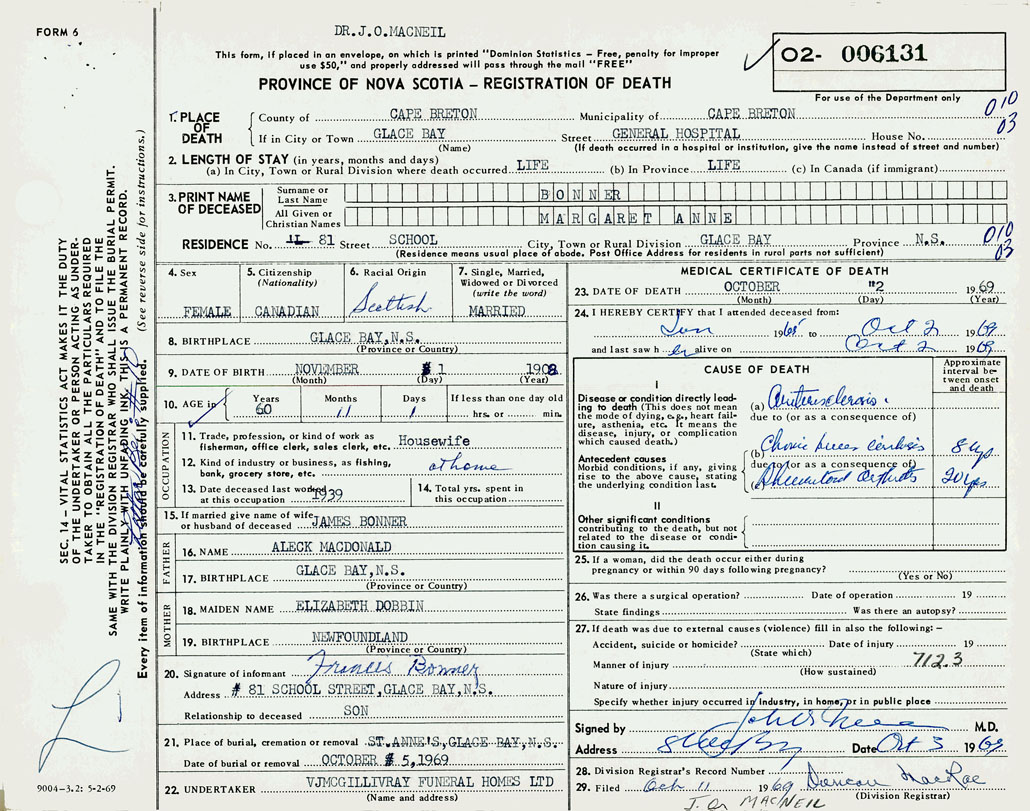 FORM 6
DR.J.O.MACNEIL
This form, if placed in an envelope, on which is printed "Dominion Statistics – Free, penalty for improper
use $50," and properly addressed will pass through the mail "FREE"
PROVINCE OF NOVA SCOTIA – REGISTRATION OF DEATH
02- 006131
For use of the Department only
010
03
1. PLACE OF DEATH
County of CAPE BRETON Municipality of CAPE BRETON
If in City or Town GLACE BAY Street GENERAL HOSPITAL House No.
(Name) (If death occurred in a hospital or institution, give the name instead of street and number)
2. LENGTH OF STAY (in years, months and days)
(a) In City, Town or Rural Division where death occurred LIFE (b) In Province LIFE (c) In Canada (if immigrant)
3. PRINT NAME OF DECEASED
Surname or Last Name BONNER
All Given or Christian Names MARGARET ANNE
RESIDENCE No. 81 Street SCHOOL City, Town or Rural Division GLACE BAY Province N.S.
010
03
(Residence means usual place of abode. Post Office Address for residents in rural parts not sufficient)
4. Sex
FEMALE
5. Citizenship
(Nationality)
CANADIAN
6. Racial Origin
Scottish
7. Single, Married,
Widowed or Divorced
(write the word)
MARRIED
8. BIRTHPLACE GLACE BAY,N.S.
(Province or Country)
9. DATE OF BIRTH NOVEMBER 1 1908
(Month) (Day) (Year)
10. AGE in
Years Months Days If less than one day old
60 11 1 hrs. or min.
OCCUPATION
11. Trade, profession, or kind of work as
fisherman, office clerk, sales clerk, etc. Housewife
12. Kind of industry or business, as fishing,
bank, grocery store, etc. at home
13. Date deceased last worked
at this occupation 1939
14. Total yrs. spent in
this occupation
15. If married give name of wife
or husband of deceased JAMES BONNER
FATHER
16. NAME ALECK MACDONALD
17. BIRTHPLACE GLACE BAY,N.S.
(Province or Country)
MOTHER
18. MAIDEN NAME ELIZABETH DOBBIN
19. BIRTHPLACE NEWFOUNDLAND
(Province or Country)
20. Signature of informant Francis Bonner
Address # 81 SCHOOL STREET,GLACE BAY,N.S.
Relationship to deceased SON
21. Place of burial, cremation or removal ST.ANNE'S,GLACE BAY,N.S.
Date of burial or removal OCTOBER 5,1969
22. UNDERTAKER VJMCGILLIVRAY FUNERAL HOMES LTD
(Name and address)
MEDICAL CERTIFICATE OF DEATH
23. DATE OF DEATH OCTOBER "2 1969
(Month) (Day) (Year)
24. I HEREBY CERTIFY that I attended deceased from:
Jan 1965 to Oct 2 1969
and last saw her alive on Oct 2 1969
CAUSE OF DEATH
Approximate
interval between
onset
and death
I
Disease or condition directly leading
to death (This does not mean
the mode of dying, e.g., heart failure,
asthenia, etc. It means the
disease, injury, or complication
which caused death.)
(a) Arteriosclerosis
due to (or as a consequence of)
Antecedent causes
Morbid conditions, if any, giving
rise to the above cause, stating
the underlying condition last.
(b) 8 yrs
due to (or as a consequence of)
(c) Rheumatoid Arthritis 20 yrs
II
Other significant conditions
contributing to the death, but not
related to the disease or condition
causing it.
25. If a woman, did the death occur either during
pregnancy or within 90 days following pregnancy?
(Yes or No)
26. Was there a surgical operation? Date of operation 19
State findings Was there an autopsy?
27. If death was due to external causes (violence) fill in also the following: –
Accident, suicide or homicide? Date of injury 19
(State which)
Manner of injury 712.3
(How sustained)
Nature of injury
Specify whether injury occurred in industry, in home, or in public place
Signed by M.D.
Address Date Oct 3 1969
28. Division Registrar's Record Number
29. Filed Oct 11 1969 Duncan MacRae
(Division Registrar)
J.O. MACNEIL
SEC. 14 – VITAL STATISTICS ACT MAKES IT THE DUTY
OF THE UNDERTAKER OR PERSON ACTING AS UNDERTAKER
TO OBTAIN ALL THE PARTICULARS REQUIRED
IN THE "REGISTRATION OF DEATH" AND TO FILE THE
SAME WITH THE DIVISION REGISTRAR WHO SHALL ISSUE THE BURIAL PERMIT.
WRITE PLAINLY WITH UNFADING INK. THIS IS A PERMANENT RECORD.
Every item of information should be carefully supplied. (See reverse side for instructions.)
9004–3.2: 5-2-69